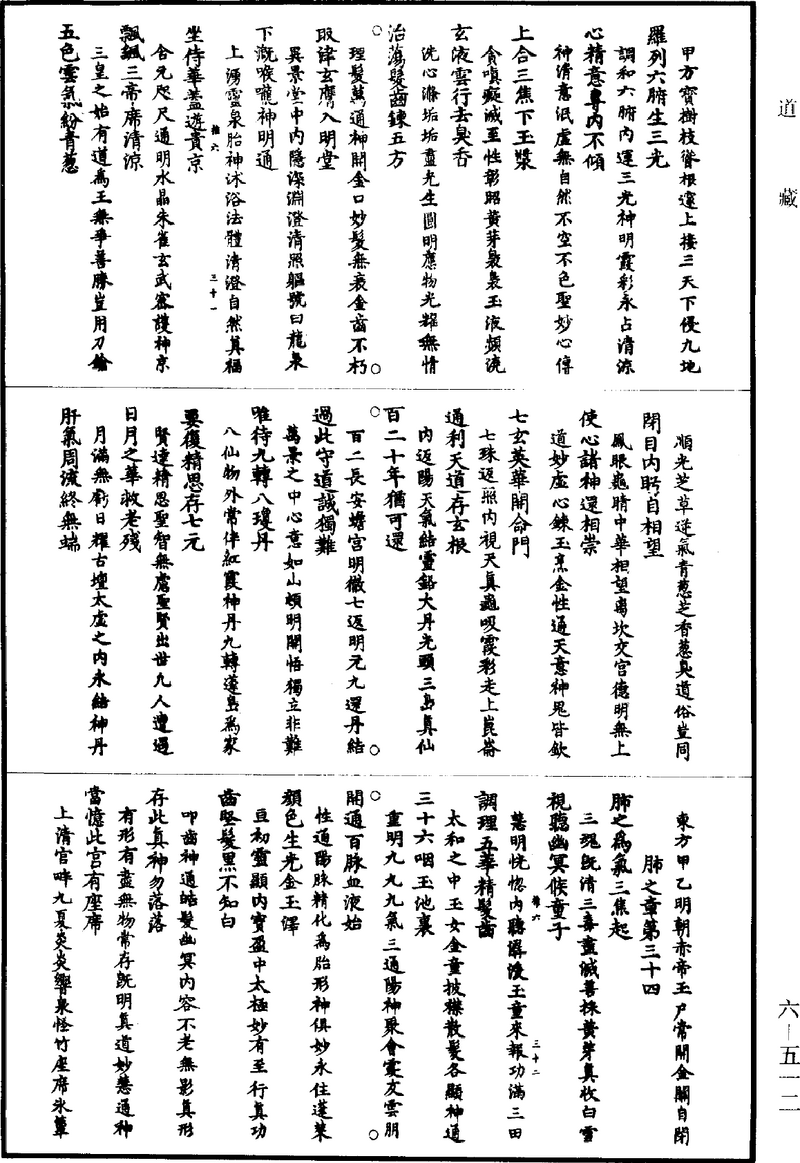 道藏
甲方寶樹枝聳根邃上接三天下侵九地
羅列六腑生三光
調和六腑內運三光神明霞彩永占清涼
心精意專內不傾
神清意泯虛無自然不空不色聖妙心傳
上合三焦下玉漿
貪嗔癡滅至性彰昭黃芽裊裊玉液頻流
玄液雲行去臭香
洗心滌垢垢盡光生圓明應物光耀無情
治蕩髮齒鍊五方
理髮萬通神開金口妙髮無衰金齒不朽
取津玄膺入明堂
異景堂中內隱深淵澄清照軀號曰龍泉
下溉喉嚨神明通
上湧靈泉胎神沐浴法體清澄自然真福
推六
三十一
坐侍華蓋遊貴京
含元咫尺通明水晶朱雀玄武密護神京
飄飄三帝席清涼
三皇之始有道為王無爭善勝豈用刀鎗
五色雲氣紛青蔥
順光芝草逆氣青蔥芝香蔥臭道俗豈同
閉目內眄自相望
鳳眼龜睛中華相望离坎交宮德明無上
使心諸神還相崇
道妙虛心鍊玉烹金性通天意神鬼皆欽
七玄英華開命門
七珠返照內視天真龜吸霞彩走上崑崙
通利天道存玄根
內返陽天氣結靈鉛大丹光顯三島真仙
百二十年猶可還
百二長安蟾宮明徹七返明元九還丹結
過此守道誠獨難
萬景之中心意如山頓明開悟獨立非難
唯待九轉八瓊丹
八仙物外常伴紅霞神丹九轉蓬島為家
要復精思存七元
賢達精思聖智無慮聖賢出世九人遭遇
日月之華救老殘
月滿無虧日耀古壇太虛之內永結神丹
肝氣周流終無端
東方甲乙明朝赤帝玉戶常開金關自閉
肺之章第三十四
肺之為氣三焦起
三魂既清三毒盡滅善採黃芽真收白雪
視聽幽冥候童子
慧明恍惚內聽潺湲玉童來報功滿三田
推六
三十二
調理五華精髮齒
太和之中玉女金童披襟散髮各顯神通
三十六咽玉池裏
重明九九九氣三通陽神聚會霞友雲朋
開通百脉血液始
性通陽脉精化為胎形神俱妙永住蓬萊
顏色生光金玉澤
亘初靈顯內寶盈中太極妙有至行真功
齒堅髮黑不知白
叩齒神通皓髮幽冥內容不老無影真形
存此真神勿落落
有形有盡無物常存既明真道妙慧通神
當憶此宮有座席
上清宮畔九夏炎炎響泉怪竹座席氷簟
六－五一二